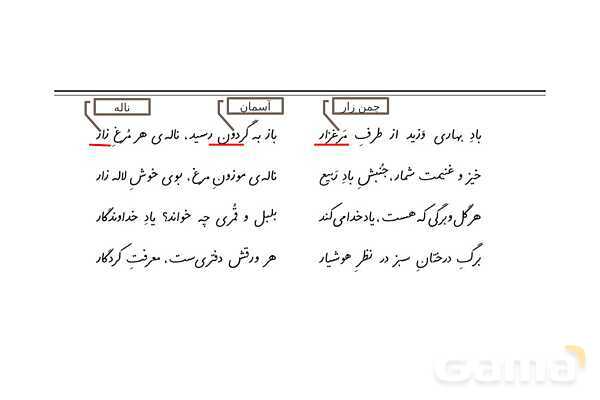 چمن زار
آسمان
ناله
بادِ بهاری وَزید از طرفِ مَرغزار
باز به گردون رسید، ناله‌ی هر مُرغِ زار
خیز و غنیمت شمار، جُنبشِ بادِ رَبیع
ناله‌ی موزونِ مرغ، بوی خوشِ لاله زار
هر گل و برگی که هست، یاد خدا می‌کند
بلبل و قُمری چه خواند؟ یادِ خداوندگار
برگِ درختانِ سبز در نظرِ هوشیار
هر ورقش دفتری‌ست، معرفتِ کردگار
Gama